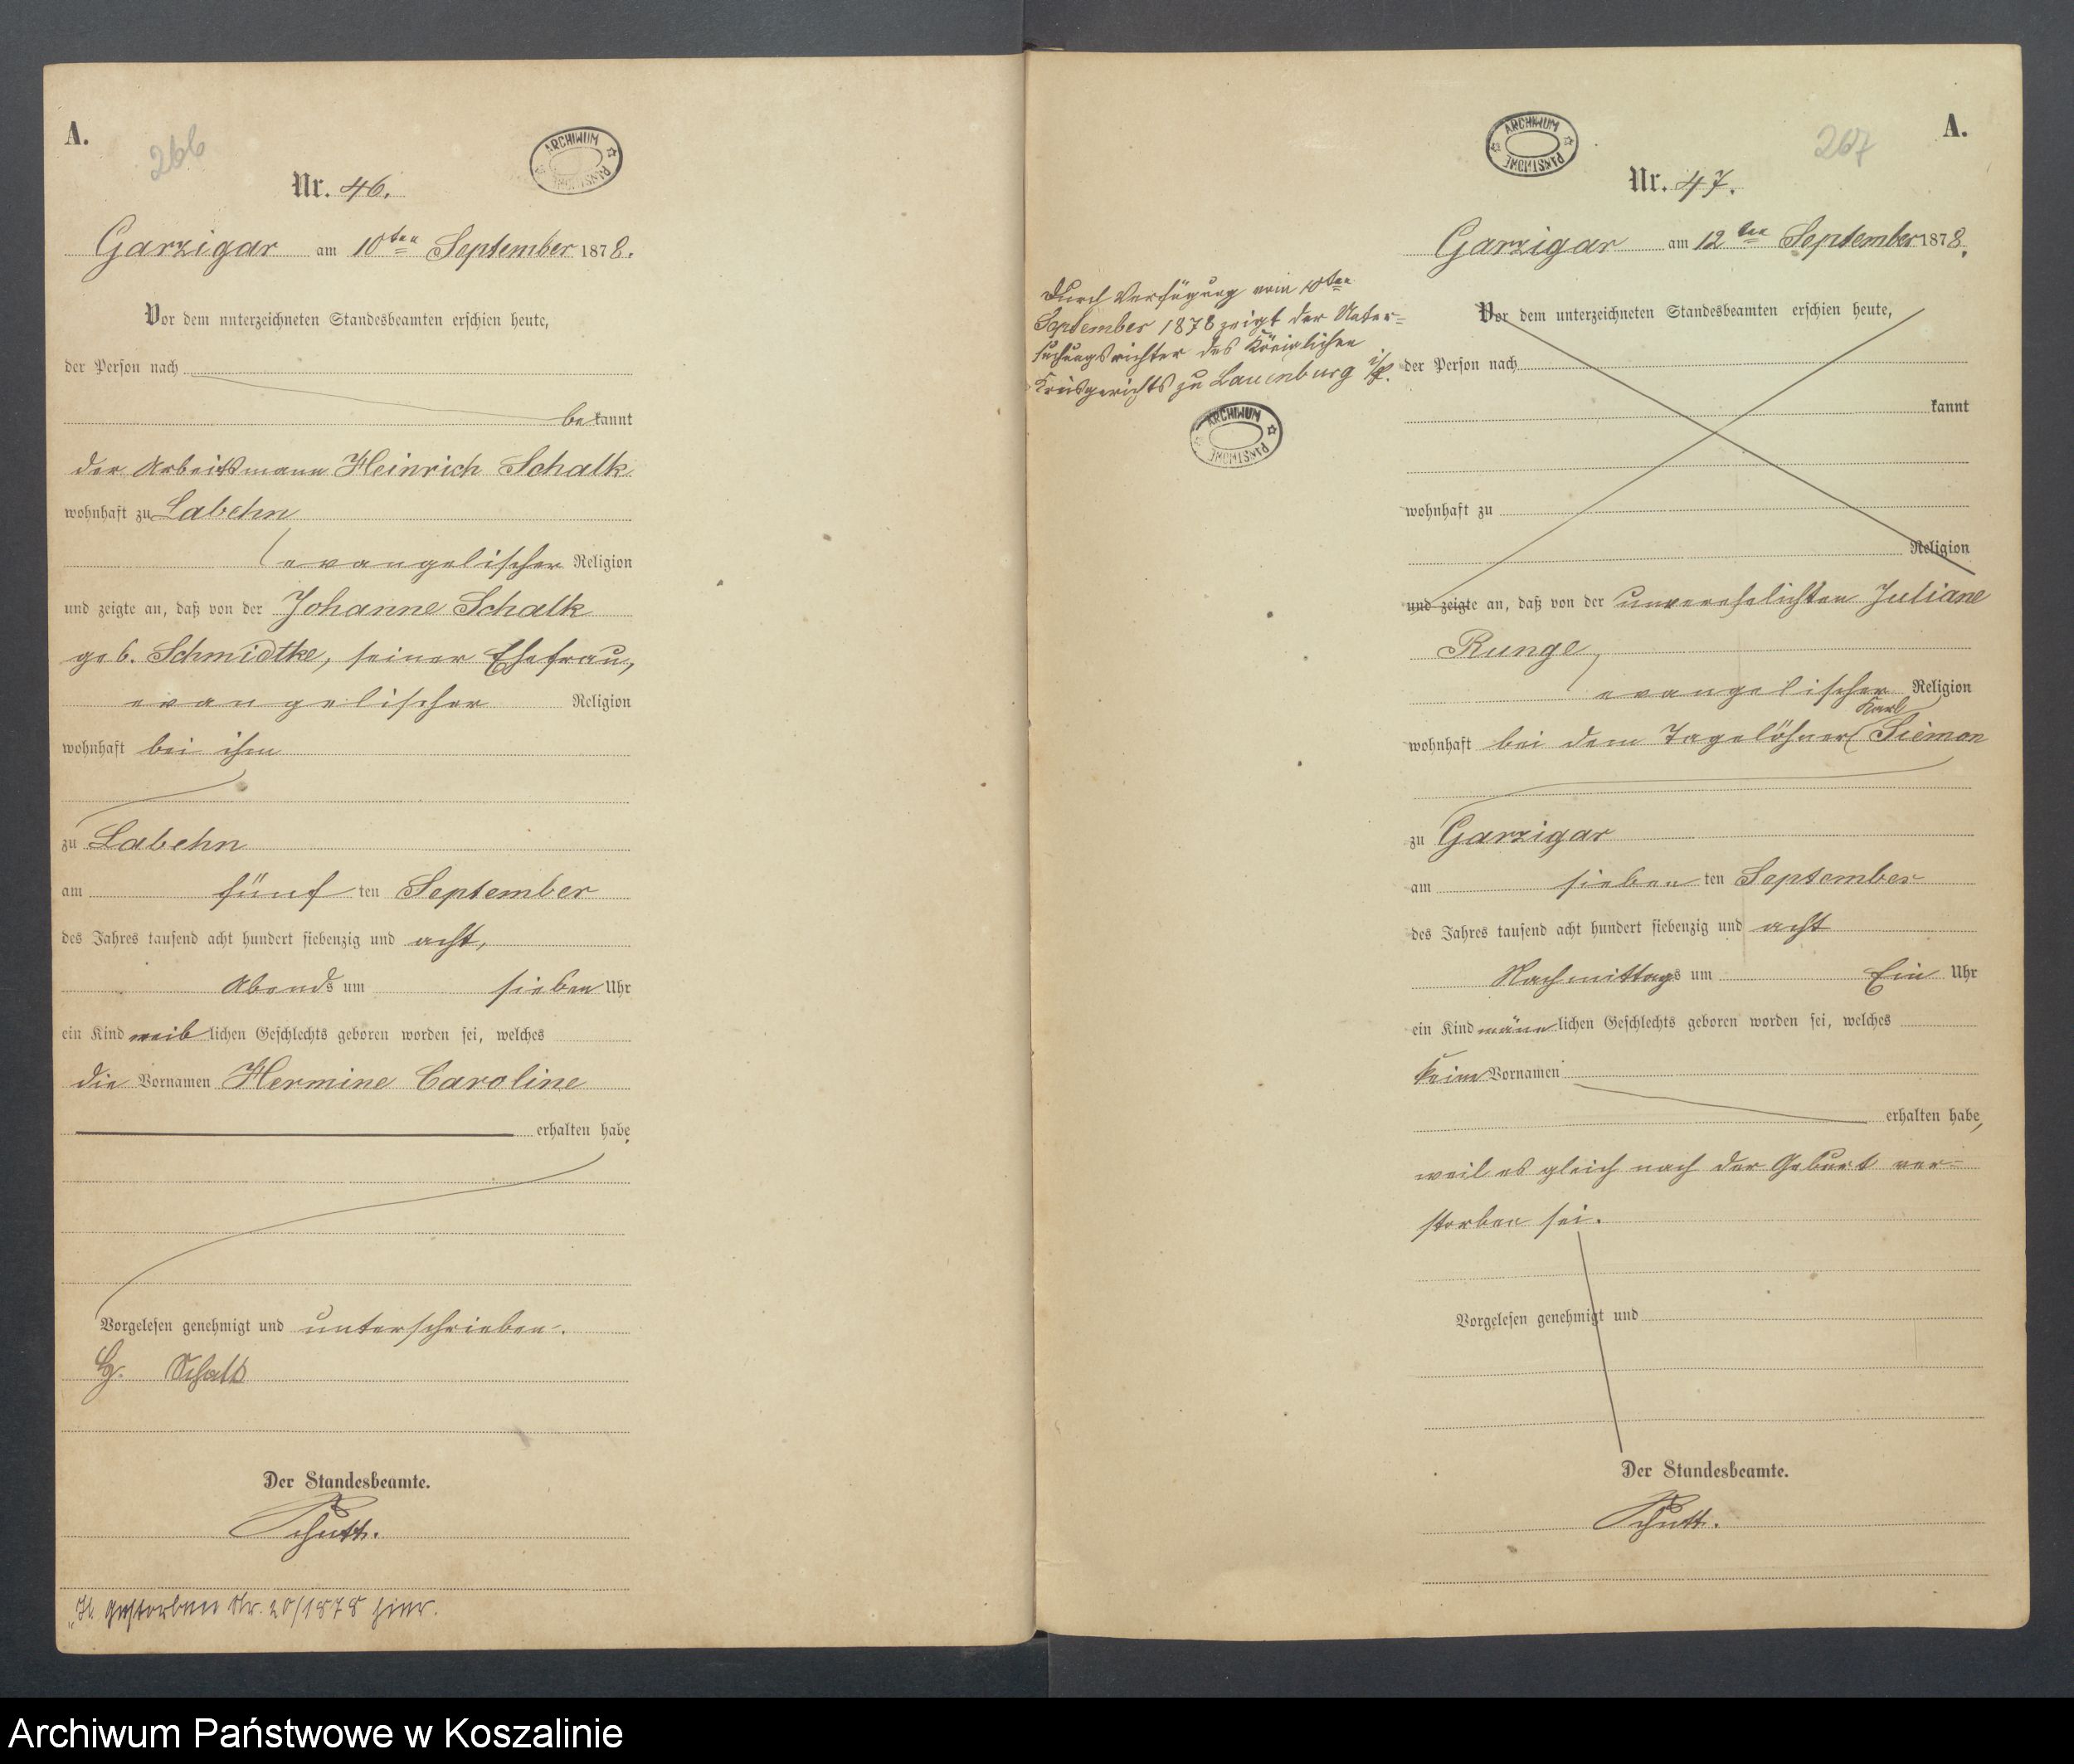 A.
266
ARCHIWUM PAŃSTWOWE
Nr. 46.
Garzigar am 10ten September 1878.
Vor dem unterzeichneten Standesbeamten erschien heute,
der Person nach
bekannt
der Arbeitsmann Heinrich Schalk
wohnhaft zu Labehn
evangelischer Religion
und zeigte an, daß von der Johanne Schalk
geb. Schmidtke, seiner Ehefrau,
evangelischer Religion
wohnhaft bei ihm
zu Labehn
am fünf ten September
des Jahres tausend acht hundert siebenzig und acht,
Abends um sieben Uhr
ein Kind weiblichen Geschlechts geboren worden sei, welches
die Vornamen Hermine Caroline
erhalten habe.
Vorgelesen genehmigt und unterschrieben.
H. Schalk
Der Standesbeamte.
Schutt.
gestorben Nr. 20/1878 hier.
A.
267
ARCHIWUM PAŃSTWOWE
Nr. 47.
Garzigar am 12ten September 1878.
Durch Verfügung vom 10ten
September 1878 zeigt der Unter=
suchungsrichter des Königlichen
Kreisgerichts zu Lauenburg i/P.
ARCHIWUM PAŃSTWOWE
Vor dem unterzeichneten Standesbeamten erschien heute,
der Person nach
kannt
wohnhaft zu
Religion
und zeigte an, daß von der unverehelichten Juliane
Runge,
evangelischer Religion
wohnhaft bei dem Tagelöhner Karl Siemon
zu Garzigar
am sieben ten September
des Jahres tausend acht hundert siebenzig und acht
Nachmittags um Ein Uhr
ein Kind männlichen Geschlechts geboren worden sei, welches
keine Vornamen
erhalten habe,
weil es gleich nach der Geburt ver=
storben sei.
Vorgelesen genehmigt und
Der Standesbeamte.
Schutt.
Archiwum Państwowe w Koszalinie